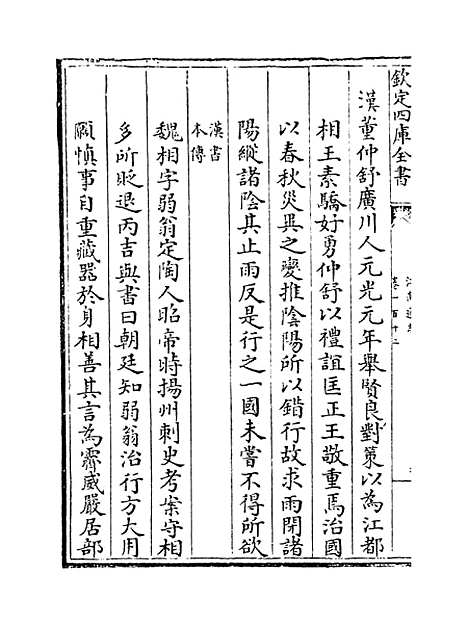 欽定四庫全書
漢董仲舒廣川人元光元年舉賢良對策以為江都
相王素驕好勇仲舒以禮誼匡正王敬重焉治國
以春秋災異之變推陰陽所以錯行故求雨閉諸
陽縱諸陰其止雨反是行之一國未嘗不得所欲
漢書
本傳
魏相字弱翁定陶人昭帝時揚州刺史考案守相
多所貶退丙吉與書曰朝廷知弱翁治行方大用
願慎事自重藏器於身相善其言為霽威嚴居部